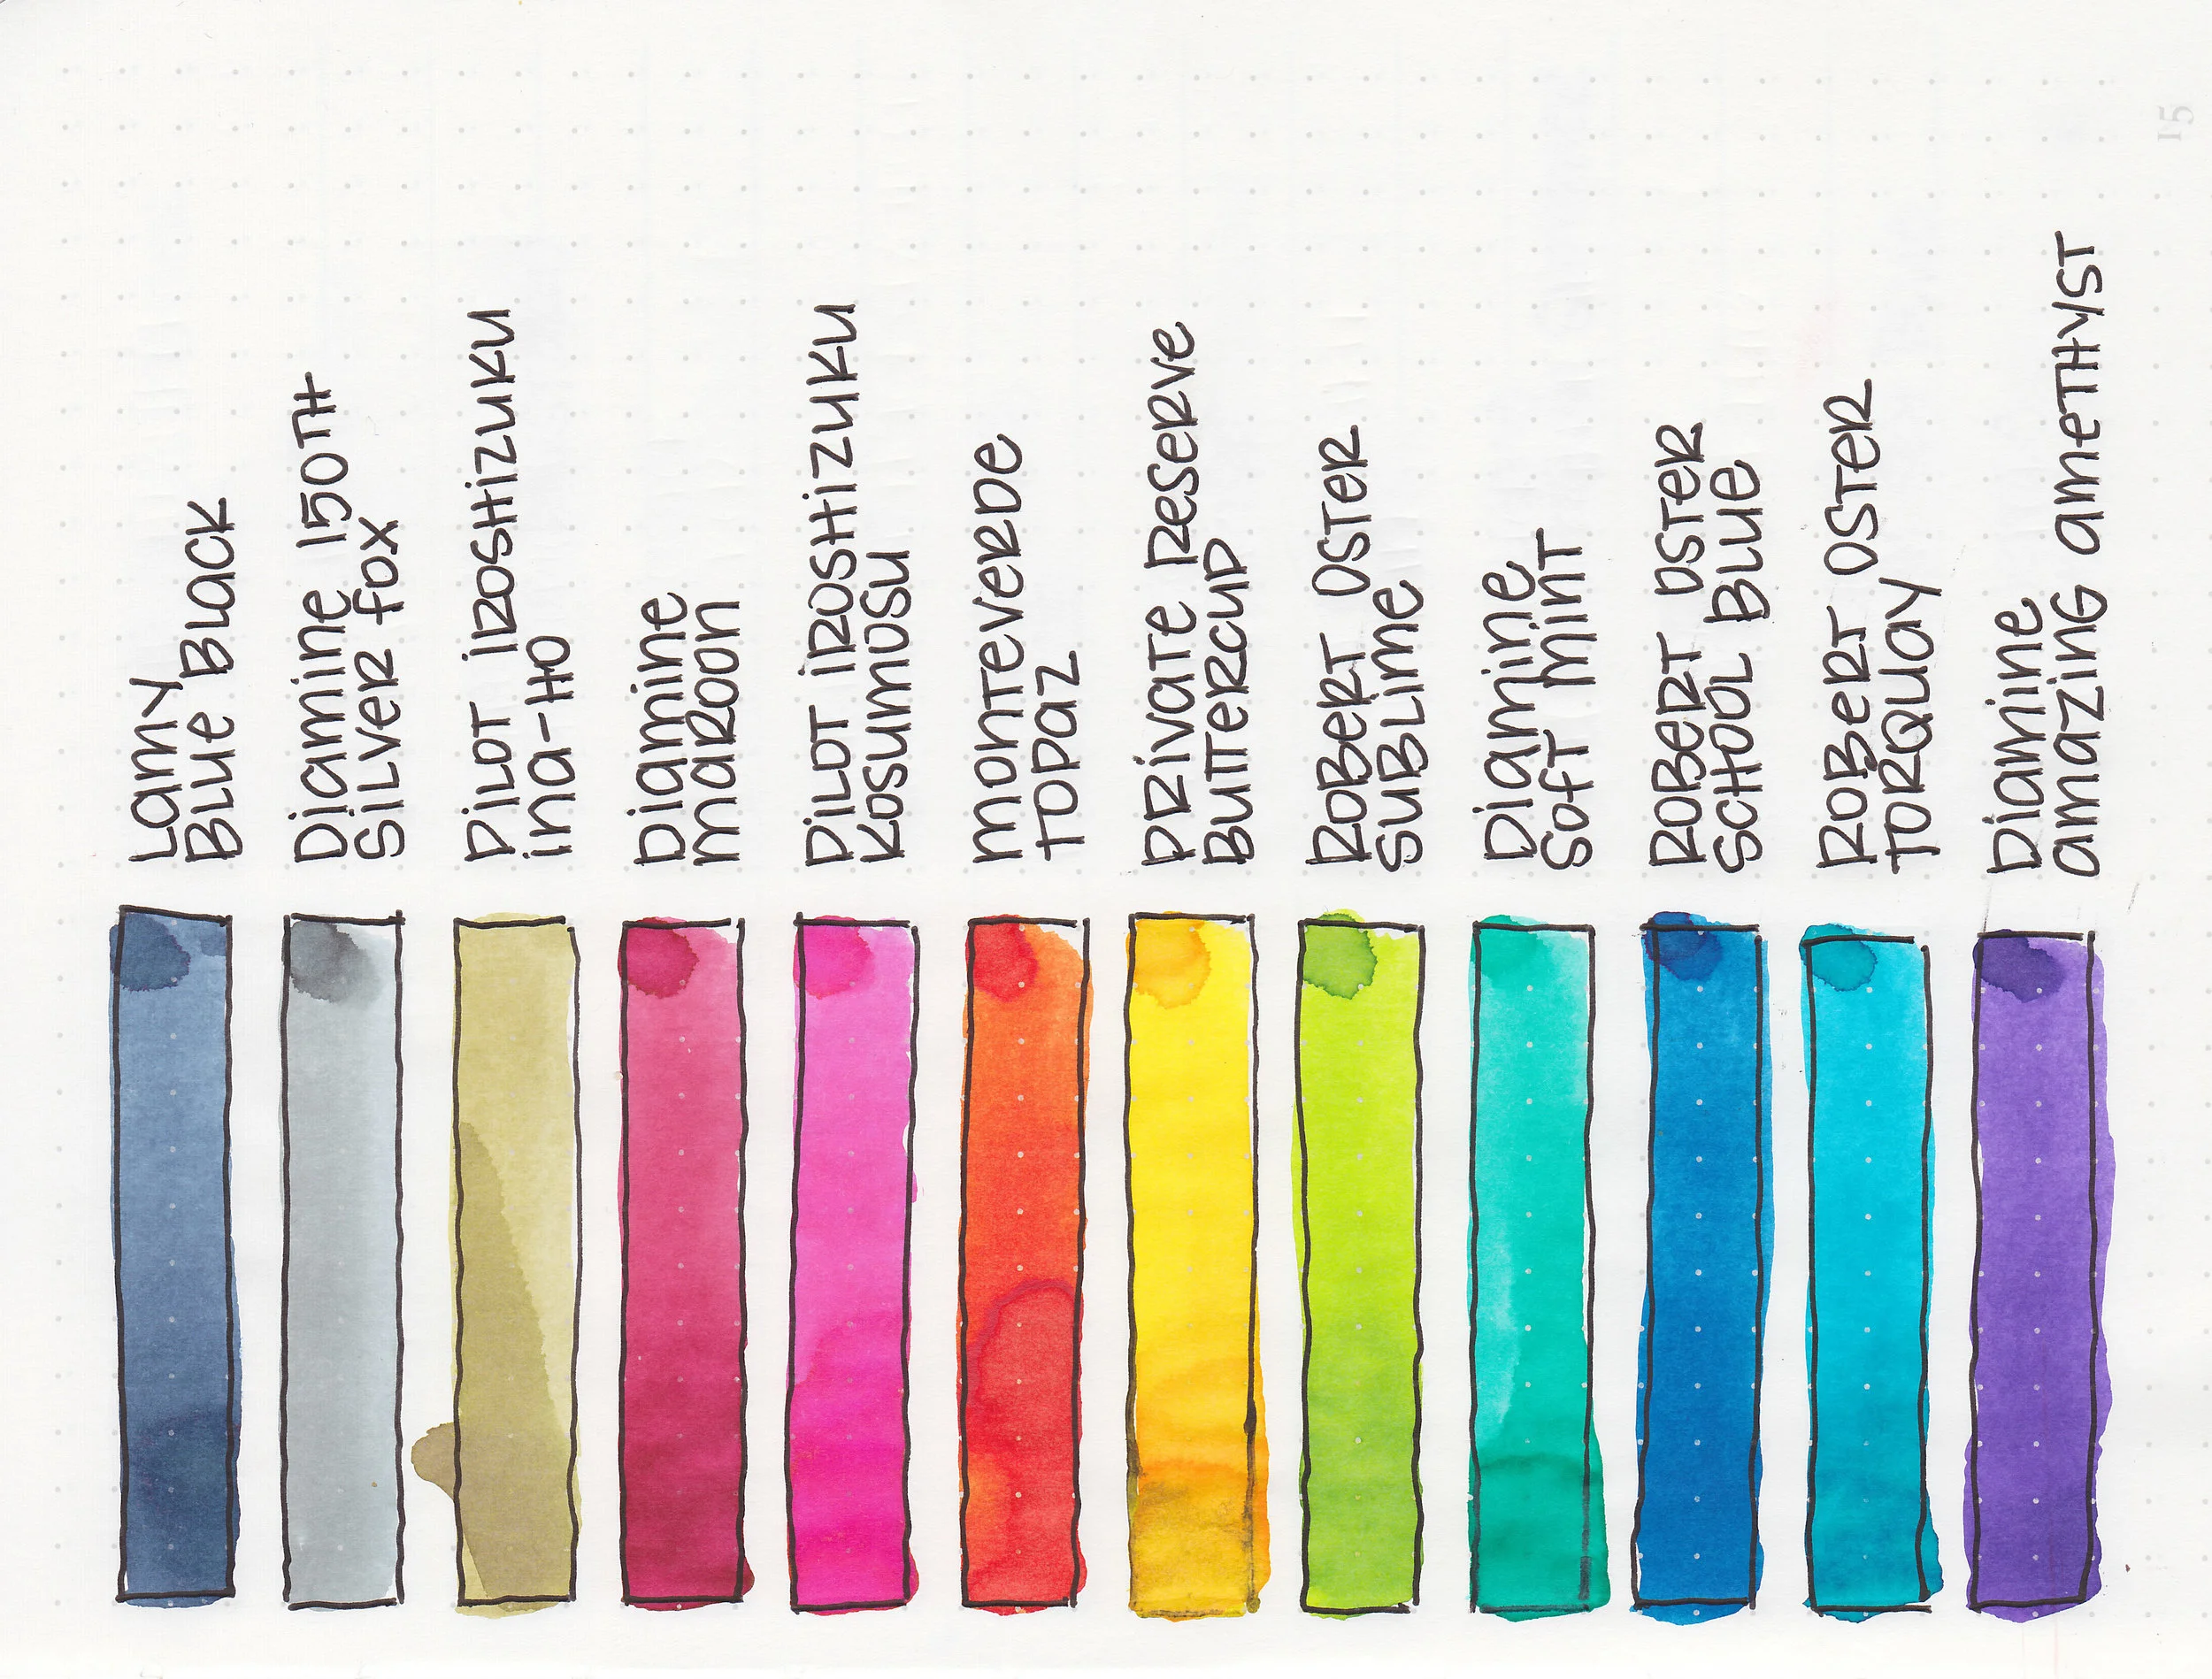 Lamy
Blue Black
Diamine 150th
Silver Fox
Pilot Iroshizuku
Ina-Ho
Diamine
Maroon
Pilot Iroshizuku
Kosumosu
Monteverde
Topaz
Private Reserve
Buttercup
Robert Oster
Sublime
Diamine
Soft Mint
Robert Oster
School Blue
Robert Oster
Torquay
Diamine
Amazing Amethyst
15